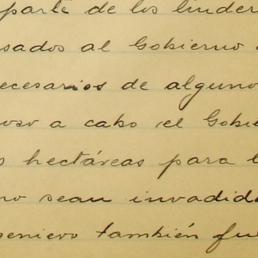 parte de los linder
sados al Gobierno
ecesarios de alguno
uso a cabo el Gobi
s hectáreas para l
no sean invadida
geniero también fu